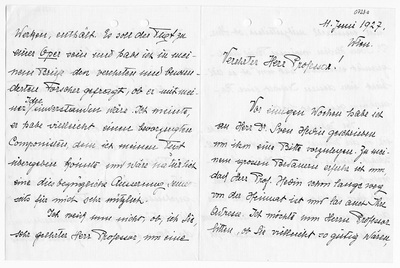 11. Juni 1927.
Wien.
Verehrter Herr Professor!
Vor einigen Wochen habe ich
an Herrn Dr. Sven Hedin geschrieben
um ihm eine Bitte vorzulegen. Zu mei-
nem grossen Bedauern erfuhr ich nun
dass Herr Prof. Hedin schon lange weg
von der Heimat ist und
Adresse. Ich möchte nun Herrn Professor
bitten, ob Sie vielleicht so gütig wären,
Werken, enthält. Es soll der Text zu
einer Oper sein und habe ich in mei-
nem Briefe den verehrten und bewun-
derten Forscher gefragt, ob er mit mei-
ner Idee einverstanden wäre. Ich meinte,
er habe vielleicht einen bevorzugten
Componisten, dem ich meinen Text
übergeben könnte und wäre natürlich
eine diesbezügliche Äusserung
für mich sehr nützlich.
Ich weiss nun nicht, ob ich Sie,
sehr geehrter Herr Professor, um eine